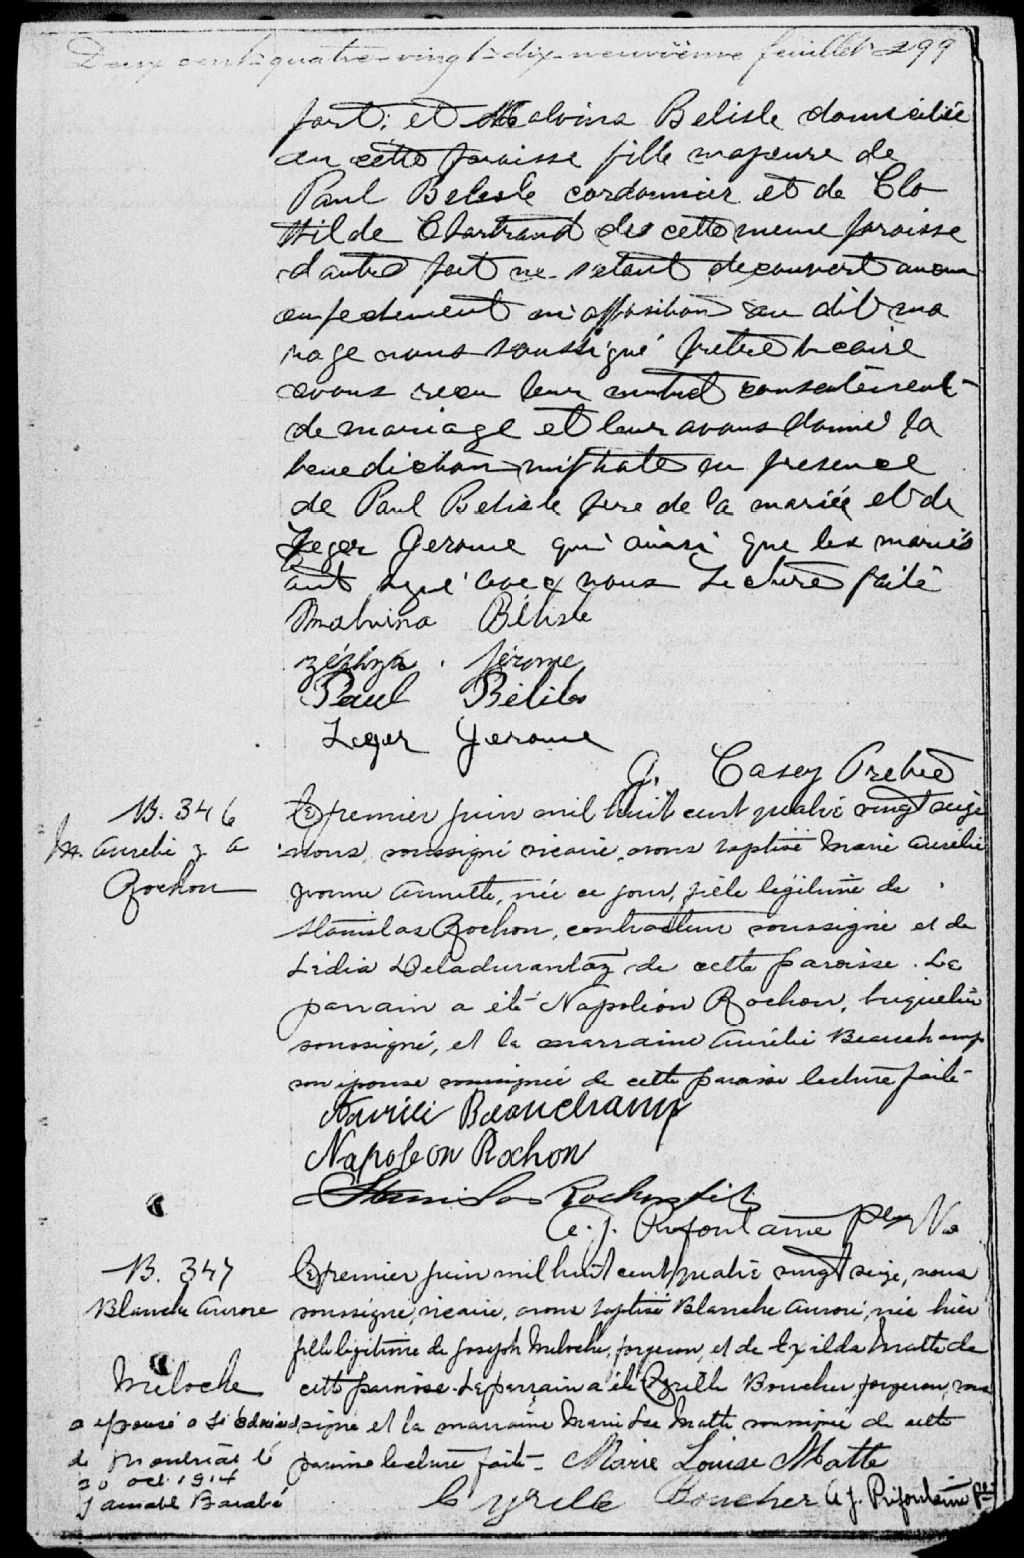 Deux cent quatre-vingt-dix-neuvième feuillet 299
part; et Malvina Belisle domiciliée
en cette paroisse fille majeure de
Paul Belisle cordonnier et de Clo
tilde Chartrand de cette meme paroisse
d'autre part ne s'etant decouvert aucun
empechement ni opposition au dit ma
riage nous soussigné pretre vicaire
avons recu leur mutuel consentement
de mariage et leur avons donné la
benediction nuptiale en presence
de Paul Belisle pere de la mariée et de
Leger Gerome qui ainsi que les mariés
ont signé avec nous Lecture faite
Malvina Bélisle
Jérome
Paul Bélisle
Leger Gerome
G. Casey Pretre
B. 346
M. Aurelie Y A
Rochon
Le premier juin mil huit cent quatre vingt seize
nous, soussigné vicaire, avons baptisé Marie Aurélie
Yvonne Annette, née ce jour, fille légitime de
Stanislas Rochon, contracteur soussigné et de
Lidia Deladurantaz de cette paroisse. Le
parrain a été Napoléon Rochon, briquetier
soussigné, et la marraine Aurélie Beauchamp
son épouse soussignée de cette paroisse lecture faite
Aurelie Beauchamp
Napoleon Rochon
Stanislas Rochon fils
A. J. Prefontaine ptre Ve
B. 347
Blanche Aurore
Meloche
a epousé a St Edouard
de Montreal le
20 oct. 1914
Barabé
Le premier juin mil huit cent quatre vingt seize, nous
soussigné, vicaire, avons baptisé Blanche Aurore, née hier
fille légitime de Joseph Meloche, forgeron, et de Exilda Matte de
cette paroisse. Le parrain a été Cyrille Boucher forgeron, sous
signé et la marraine Marie Lse Matte soussignée de cette
paroisse lecture faite - Marie Louise Matte
Cyrille Boucher A. J. Prefontaine Ptre